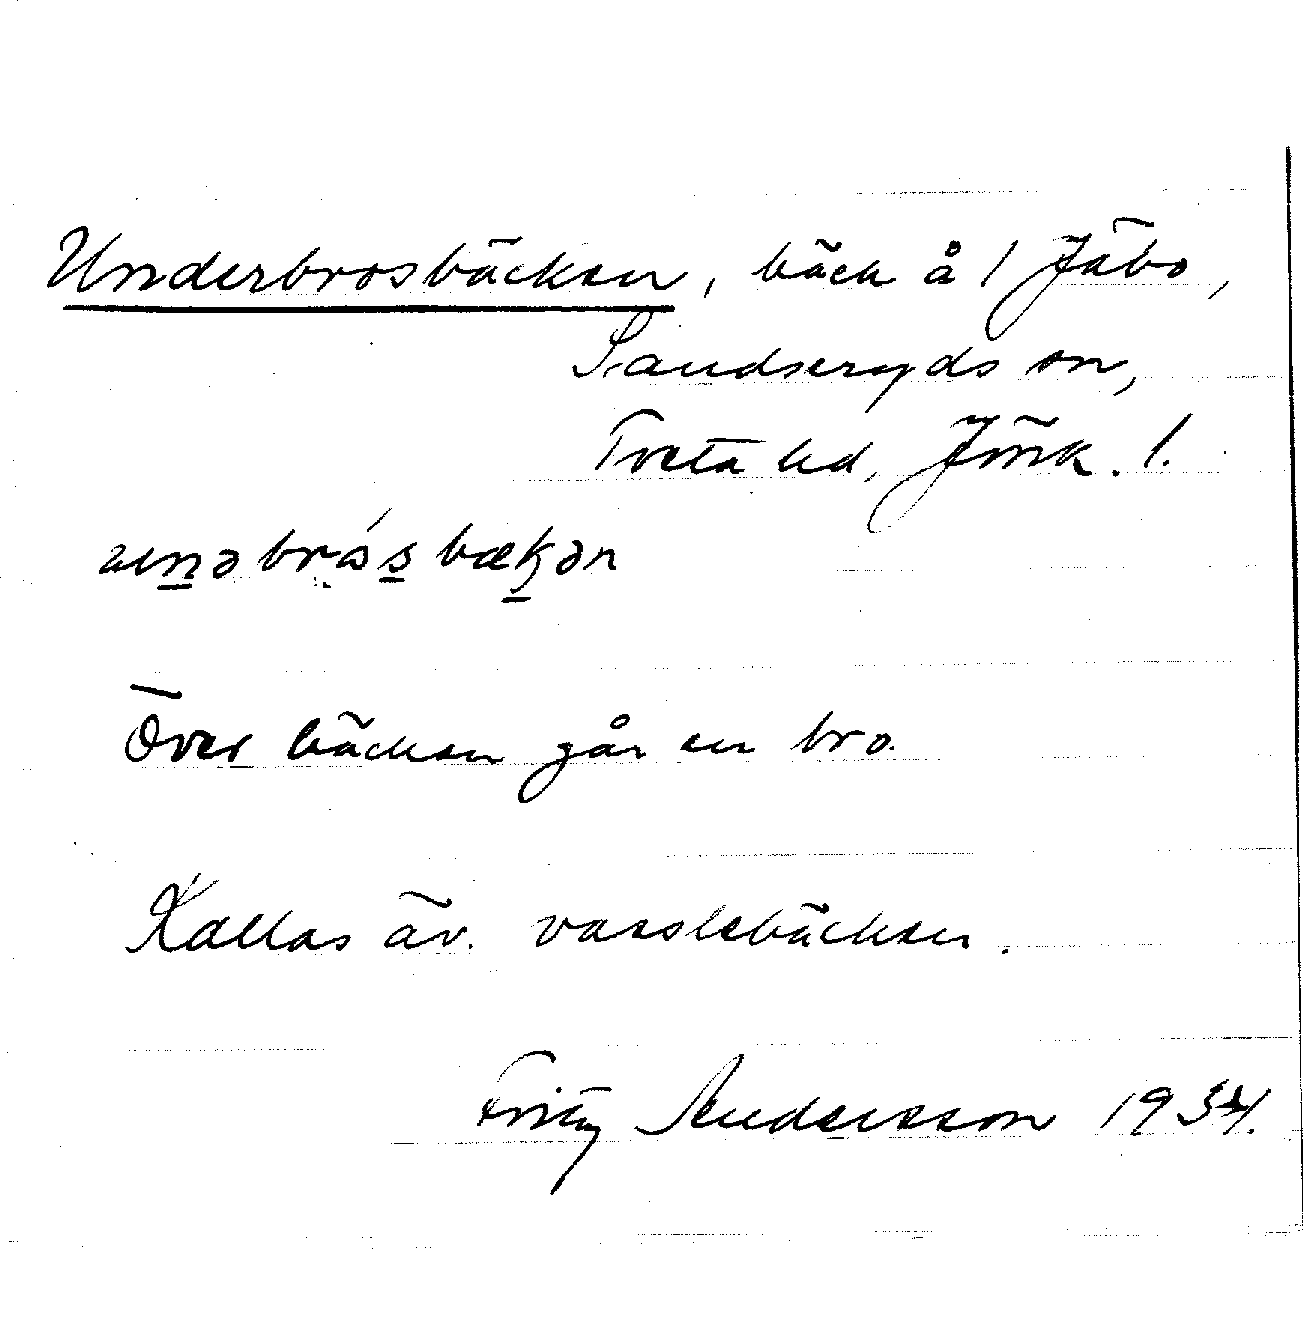 Underbrosbäcken, bäck å 1 Jäbo,
Sandseryds sn,
Tveta hd, Jönk. l.
unəbrósbækən
Över bäcken går en bro.
Kallas äv. vasslebäcken.
Fritz Andersson 1934.